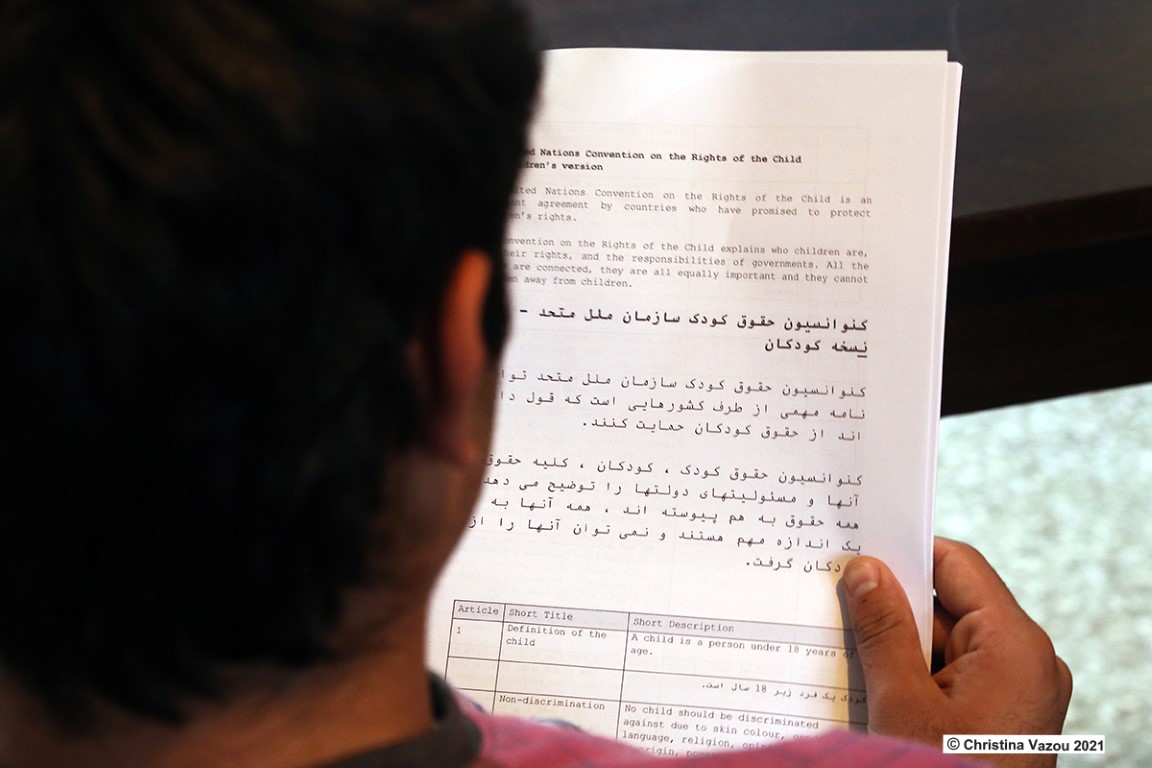 Nations Convention on the Rights of the Child
version
Nations Convention on the Rights of the Child is an
agreement by countries who have promised to protect
rights.
on the Rights of the Child explains who children are,
rights, and the responsibilities of governments. All the
are connected, they are all equally important and they cannot
away from children.
کنوانسیون حقوق کودک سازمان ملل متحد -
نسخه کودکان
کنوانسیون حقوق کودک سازمان ملل متحد
نامه مهمی از طرف کشورهایی است که قول
اند از حقوق کودکان حمایت کنند.
کنوانسیون حقوق کودک ، کودکان ، کلیه حقوق
آنها و مسئولیتهای دولتها را توضیح می دهد
همه حقوق به هم پیوسته اند ، همه آنها به
یک اندازه مهم هستند و نمی توان آنها را از
گرفت.
Article Short Title Short Description
1 Definition of the child A child is a person under 18 years of age.
کودک یک فرد زیر 18 سال است.
Non-discrimination No child should be discriminated
against due to skin colour,
language, religion,
© Christina Vazou 2021